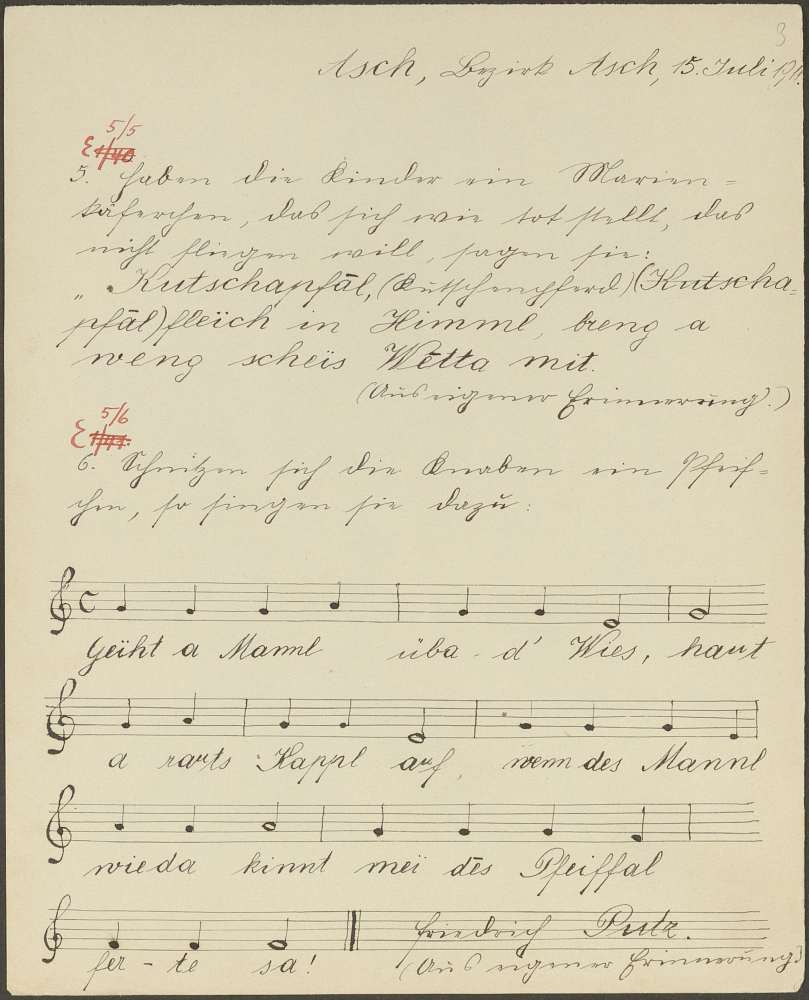 3
Asch, Bezirk Asch, 15. Juli 1911.
5/5
E 1/40
5. Haben die Kinder ein Marien=
käferchen, das sich wie tot stellt, das
nicht fliegen will, sagen sie:
"Kutschapfāl, (Kutschenpferd) (Kutscha=
pfāl) fleïch in Himml, breng a
weng scheïs Wētta mit.
(Aus eigener Erinnerung.)
5/6
E 1/41.
6. Schnitzen sich die Knaben ein Pfeif=
chen, so singen sie dazu:
Geïht a Mannl üba d' Wies, haut
a rauts Kappl auf, wenn des Mannl
wieda kinnt meï dēs Pfeiffal
fer - te sa!
Friedrich Putz.
(Aus eigener Erinnerung)